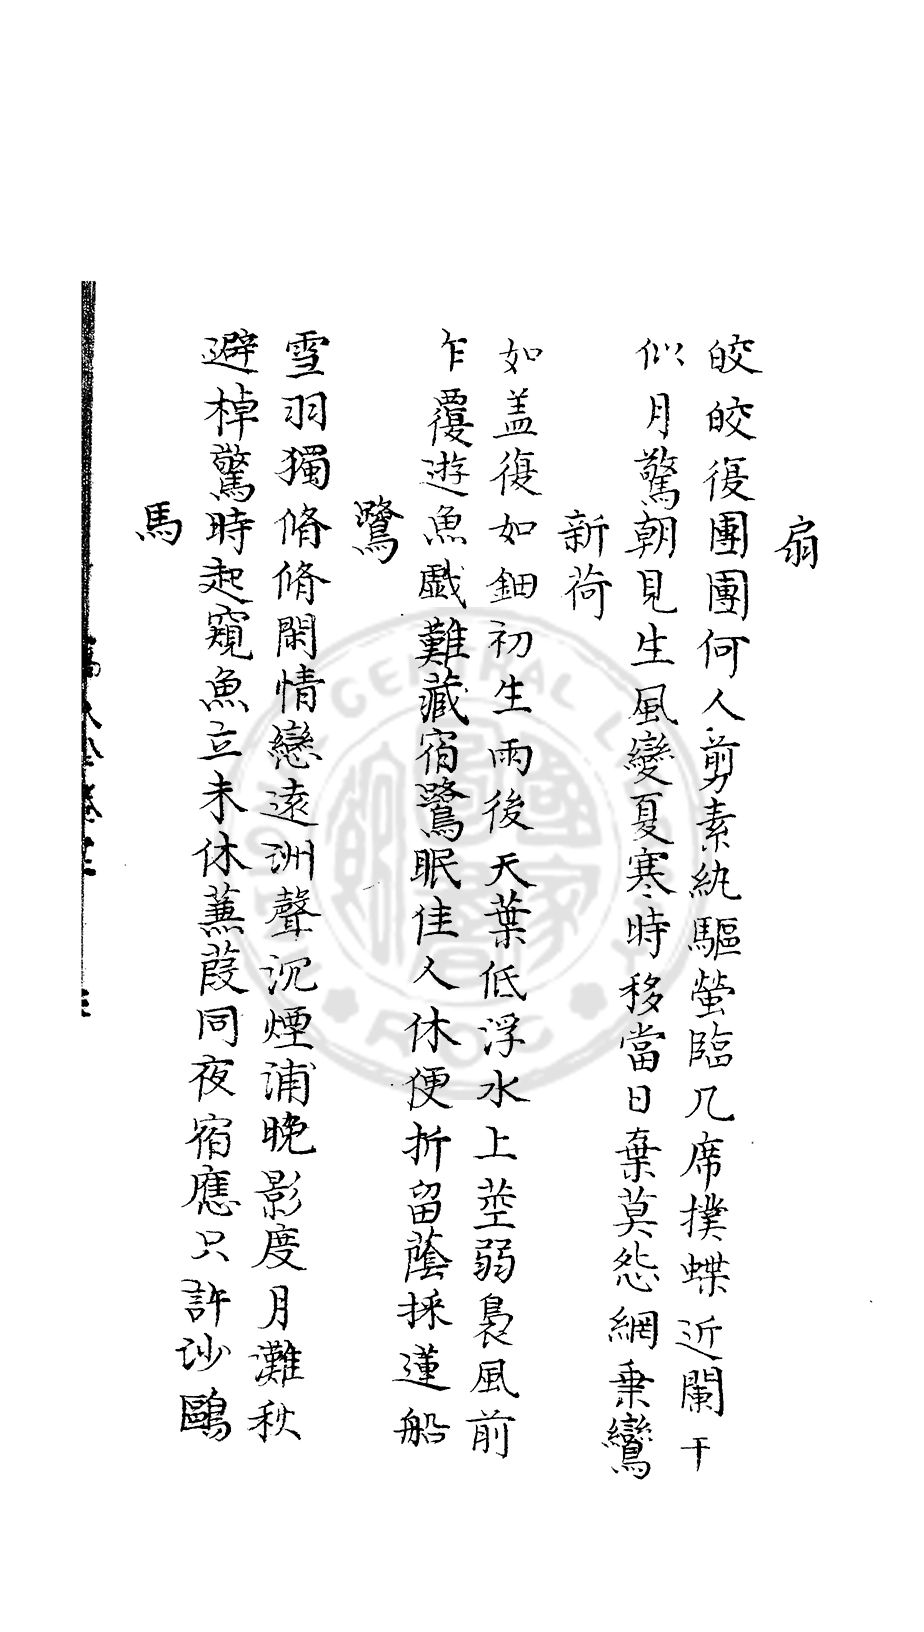 扇
皎皎復團團何人剪素紈驅螢臨几席撲蝶近闌干
似月驚朝見生風變夏寒時移當日棄莫怨網乗鸞
新荷
如盖復如鈿初生雨後天葉低浮水上莖弱裊風前
乍覆遊魚戯難藏宿鷺眠佳人休便折留蔭採蓮船
鷺
雪羽獨脩脩閑情戀遠洲聲沉煙浦晚影度月灘秋
避棹驚時起窺魚立未休蒹葭同夜宿應只許沙鷗
馬